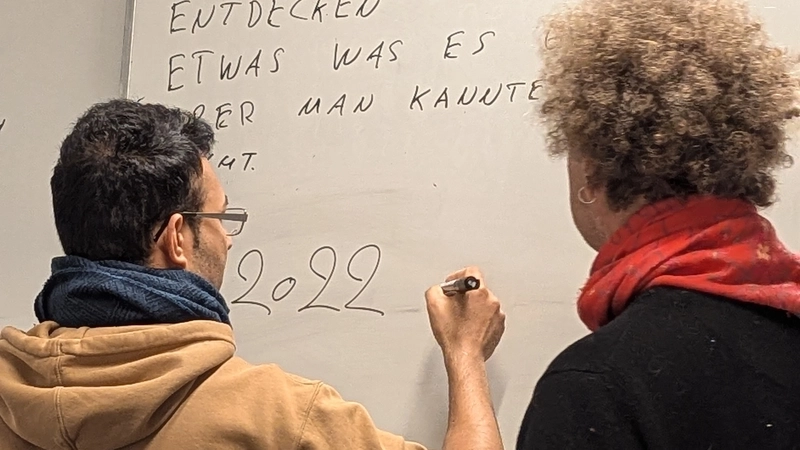 ENTDECKEN
ETWAS WAS ES
MAN KANNTE
2022